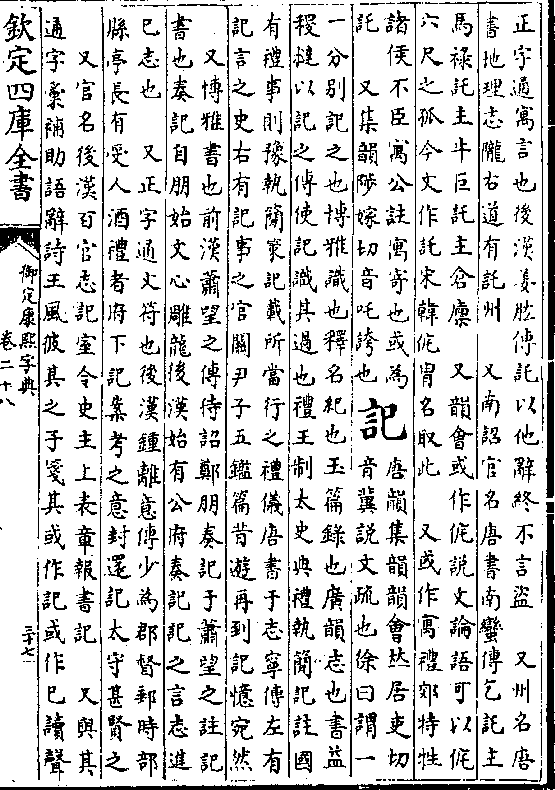 正字通寓言也後漢姜肱傳託以他辭終不言盜　又州名唐
書地理志隴右道有託州　又南詔官名唐書南蠻傳乞託主
馬祿託主牛巨託主倉廩　又韻會或作侂説文論語可以侂
六尺之孤今文作託宋韓侂胄名取此　又或作寓禮郊特牲
諸侯不臣寓公註寓寄也或為
託　又集韻陟嫁切音吒誇也
記
唐韻集韻韻會𠀤居吏切
音冀説文疏也徐曰謂一
一分別記之也博雅識也釋名紀也玉篇錄也廣韻志也書益
稷撻以記之傳使記識其過也禮王制太史典禮執簡記註國
有禮事則豫執簡策記載所當行之禮儀唐書于志寧傳左有
記言之史右有記事之官關尹子五鑑篇昔遊再到記憶宛然
又博雅書也前漢蕭望之傳待詔鄭朋奏記于蕭望之註記
書也奏記自朋始文心雕龍後漢始有公府奏記記之言志進
已志也　又正字通文符也後漢鍾離意傳少為郡督郵時部
縣亭長有受人酒禮者府下記案考之意封還記太守甚賢之
又官名後漢百官志記室令史主上表章報書記　又與其
通字彙補助語辭詩王風彼其之子箋其或作記或作已讀聲
欽定四庫全書
御定康熙字典
卷二十八
三十七